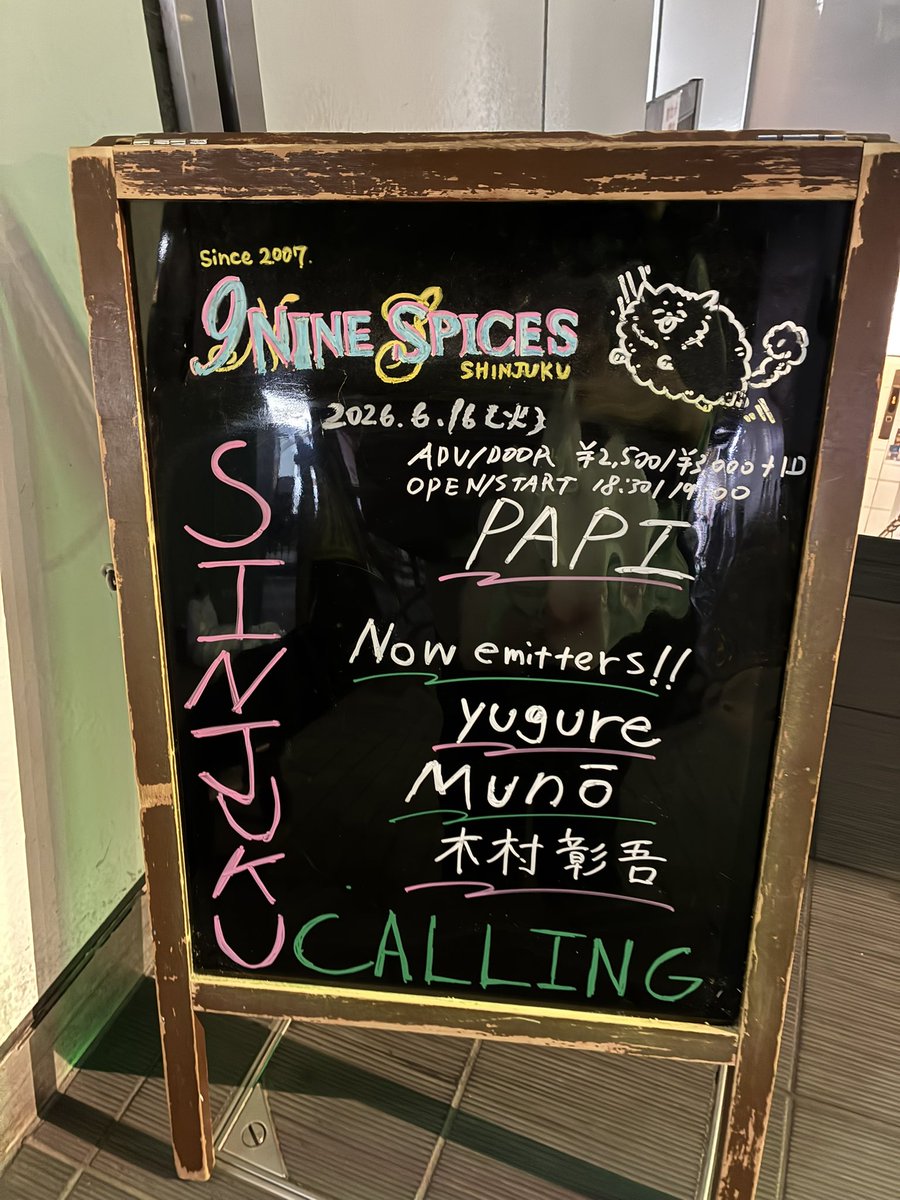 Since 2007.
9 NINE SPICES
SHINJUKU
2026.6.16(火)
ADV/DOOR ¥2,500/¥3,000+1D
OPEN/START 18:30/19:00
PAPI
Now emitters!!
yugure
Munō
木村彰吾
SINJUKU
CALLING